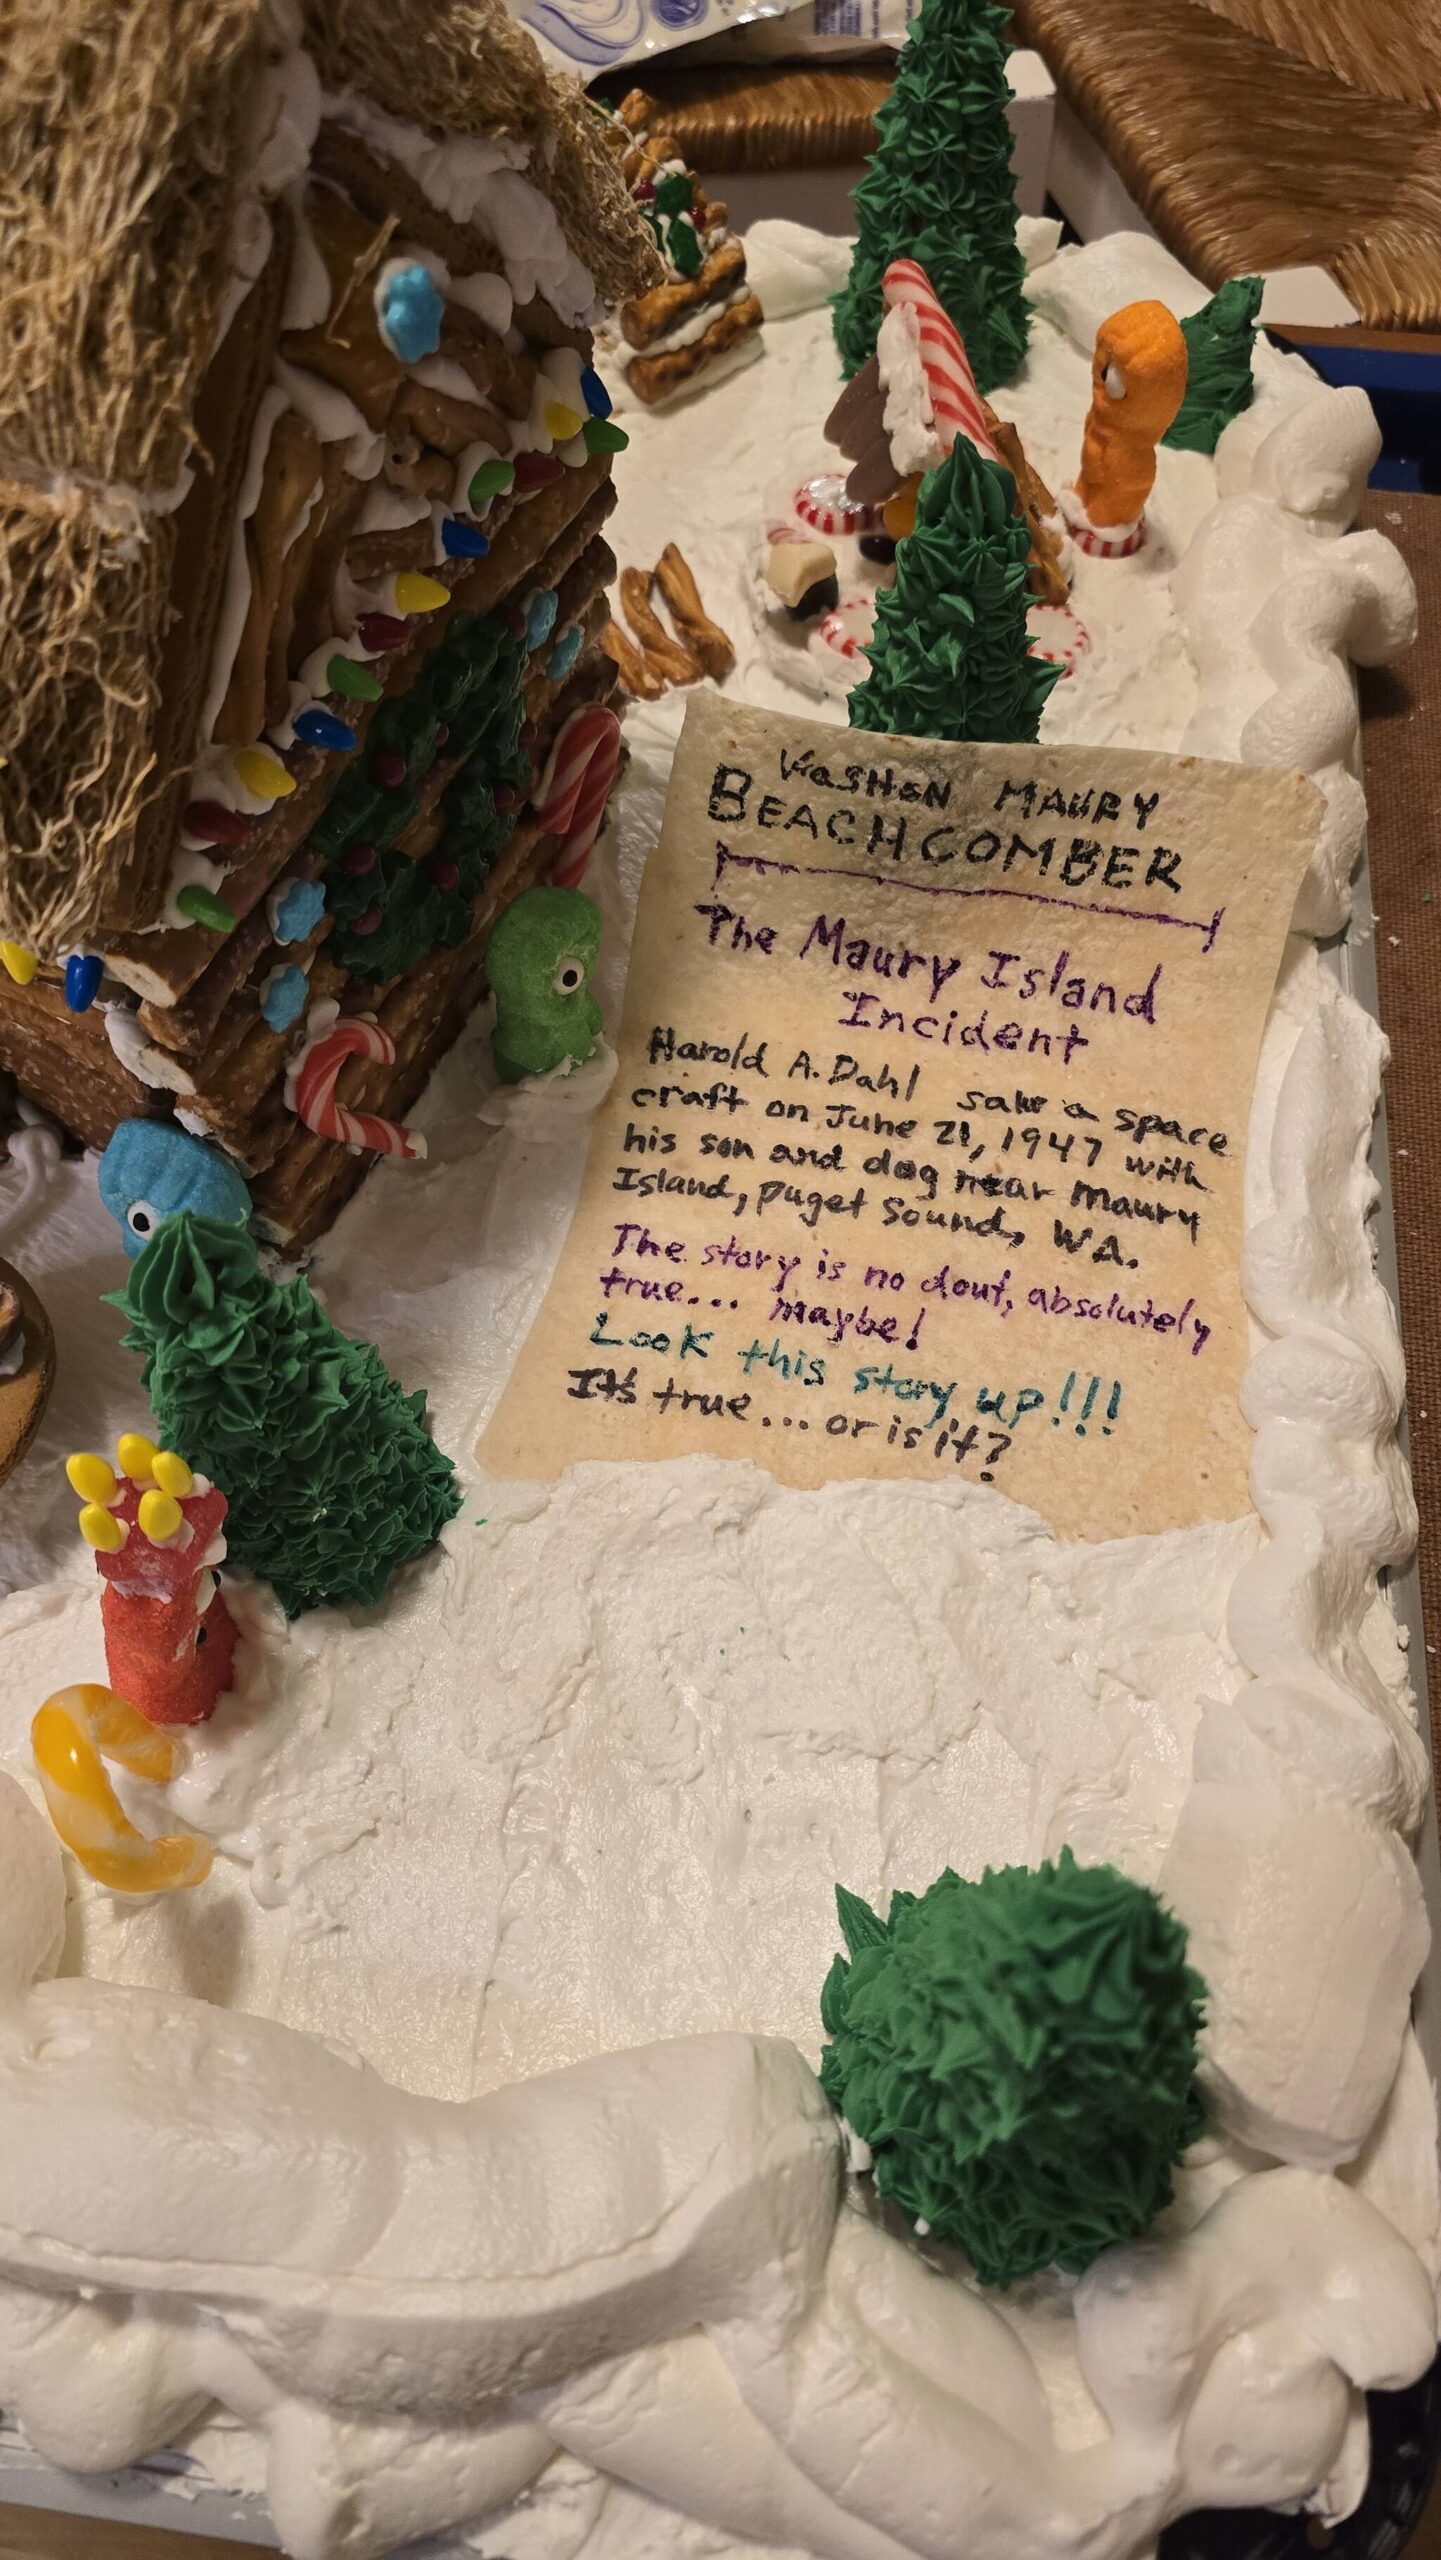 VaSHoN MAURY
BEACHCOMBER
The Maury Island
Incident
Harold A. Dahl saw a space
craft on June 21, 1947 with
his son and dog near Maury
Island, Puget Sound, WA.
The story is no dout, absolutely
true... maybe!
Look this story up!!!
It's true... or is it?